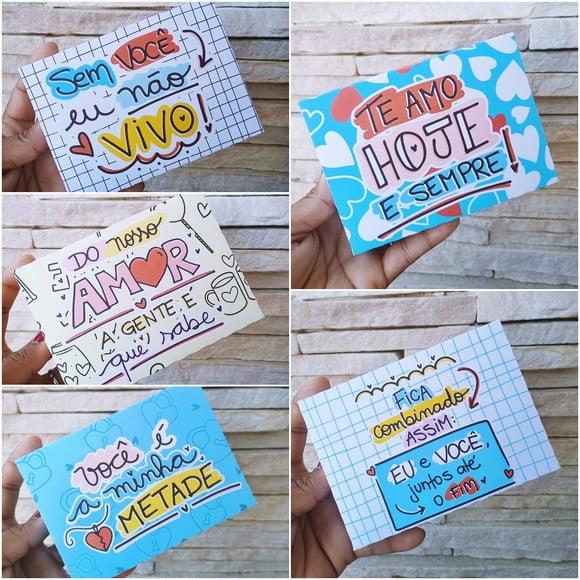 Sem VOCÊ
eu não
VIVO!
TE AMO
HOJE
E SEMPRE!
DO NOSSO
AMOR
A GENTE É
que sabe
FICA
combinado
ASSIM:
EU e VOCÊ,
juntos até
O FIM
Você é
a minha
METADE